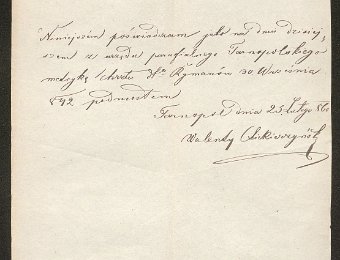 Niniejszém poświadczam jako na dniu dzisiej„
szem z urzędu parafialnego Tarnopolskego
metrykę chrztu Rymanów 30 Września
842 podniosłem
Tarnopol dnia 25 Lutego 860
Walenty